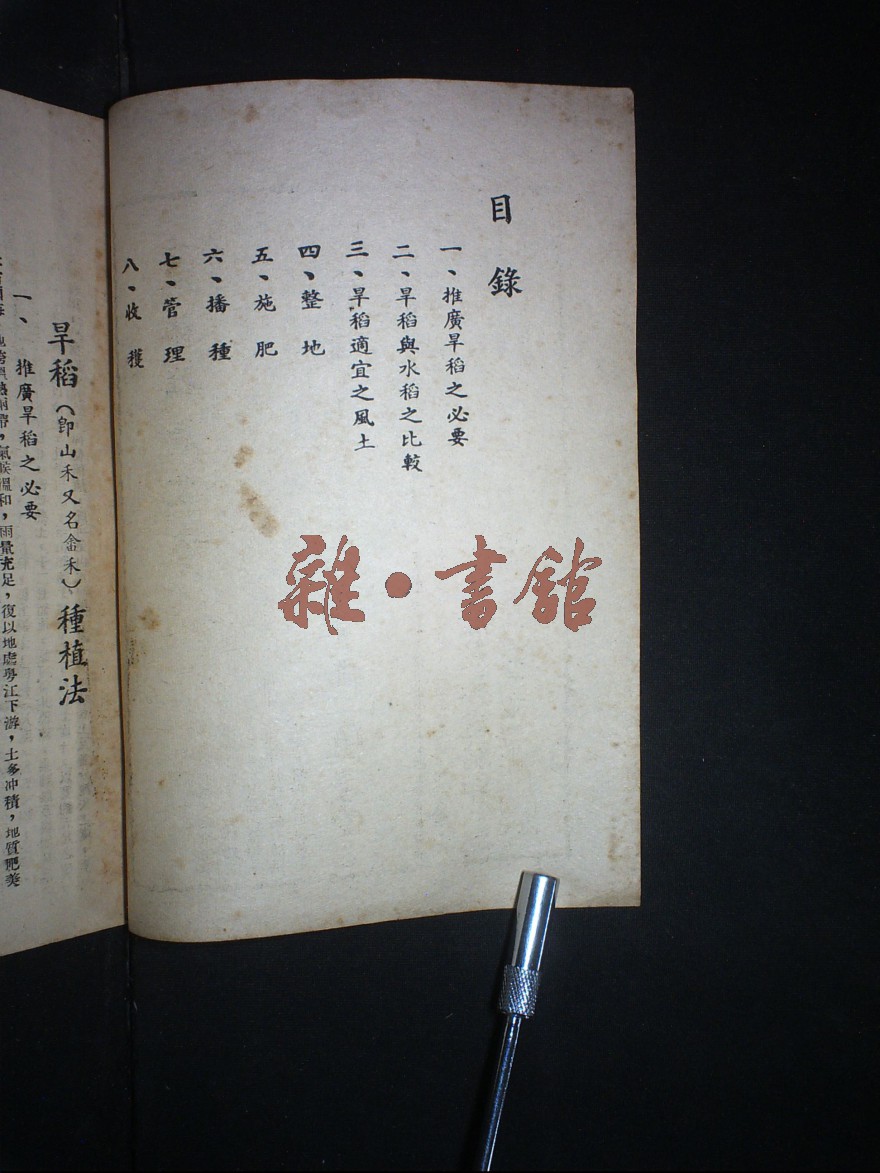 目錄
一、推廣旱稻之必要
二、旱稻與水稻之比較
三、旱稻適宜之風土
四、整地
五、施肥
六、播種
七、管理
八、收穫
旱稻（卽山禾又名畬禾）種植法
一、推廣旱稻之必要
氣候溫和，雨量充足，復以地處粵江下游，土多冲積，地質肥美
雜·書館